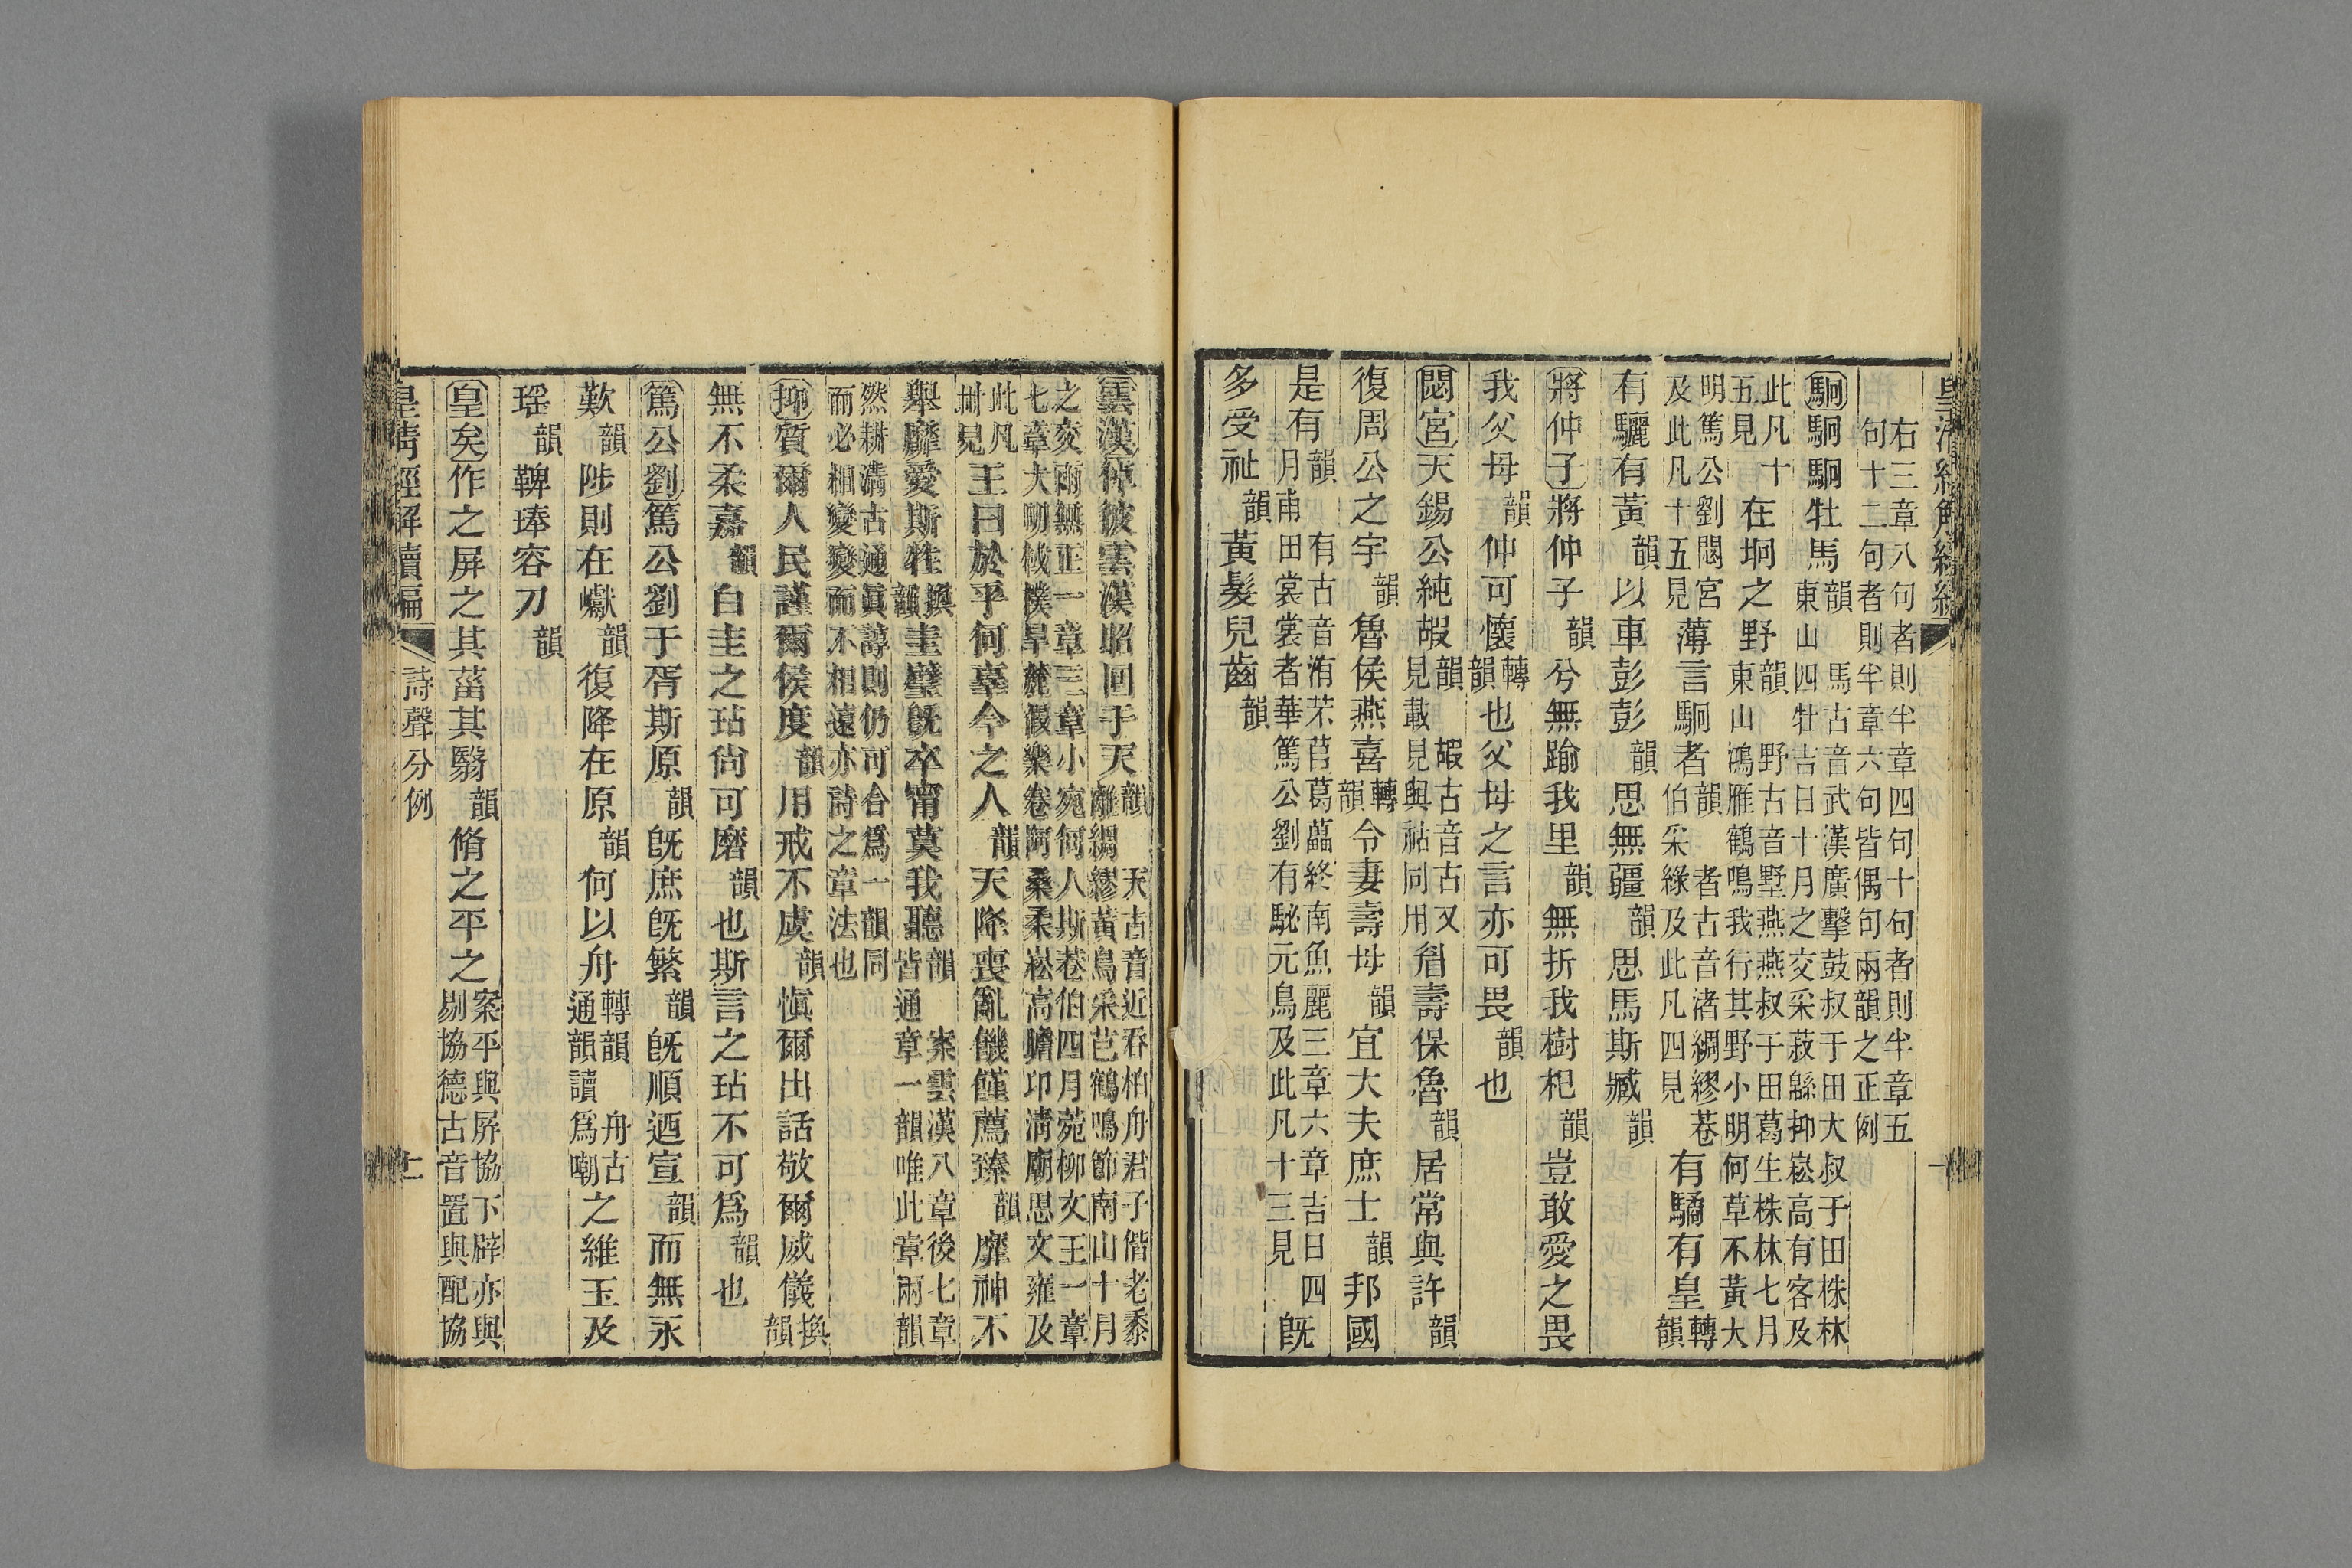 皇清經解續編
右三章八句者則半章四句十句者則半章五
句十二句者則半章六句皆偶句兩韻之正例
駉駉駉牡馬韻馬古音武漢廣擊鼓叔于田大叔于田株林東山四牡吉日十月之交采菽緜抑崧高有客及
此凡十五見在坰之野韻野古音墅燕燕叔于田葛生株林七月東山鴻雁鶴鳴我行其野小明何草不黃大
明篤公劉閟宮及此凡十五見薄言駉者韻者古音渚綢繆巷伯采綠及此凡四見有驕有皇轉韻
有驪有黃韻以車彭彭韻思無疆韻思馬斯臧韻
將仲子將仲子韻兮無踰我里韻無折我樹杞韻豈敢愛之畏
我父母韻仲可懷轉韻也父母之言亦可畏韻也
閟宮天錫公純嘏韻嘏古音古又見載見與祜同用眉壽保魯韻居常與許韻
復周公之宇韻魯侯燕喜轉韻令妻壽母韻宜大夫庶士韻邦國
是有韻有古音洧芣苢葛藟終南魚麗三章六章吉日四月甫田裳裳者華篤公劉有駜元鳥及此凡十三見旣
多受祉韻黃髮兒齒韻
雲漢倬彼雲漢昭回于天韻天古音近吞柏舟君子偕老黍離綢繆黃鳥采芑鶴鳴節南山十月
之交雨無正一章三章小宛何人斯巷伯四月菀柳文王一章七章大明棫樸旱麓假樂卷阿桑柔崧高瞻卬淸廟思文雍及
此凡卅見王曰於乎何辜今之人韻天降喪亂饑饉薦臻韻靡神不
舉靡愛斯牲換韻圭璧旣卒甯莫我聽韻案雲漢八章後七章皆通章一韻唯此章兩韻
然耕淸古通眞諄則仍可合爲一韻同而必相變變而不相遠亦詩之章法也
抑質爾人民謹爾侯度韻用戒不虞韻愼爾出話敬爾威儀換韻
無不柔嘉韻白圭之玷尙可磨韻也斯言之玷不可爲韻也
篤公劉篤公劉于胥斯原韻旣庶旣繁韻旣順迺宣韻而無永
歎韻陟則在巘韻復降在原韻何以舟轉韻通韻讀舟古爲啁之維玉及
瑶韻鞞琫容刀韻
皇矣作之屏之其菑其翳韻脩之平之案平與屏協下辟亦與剔協德古音置與配協
皇淸經解續編
詩聲分例